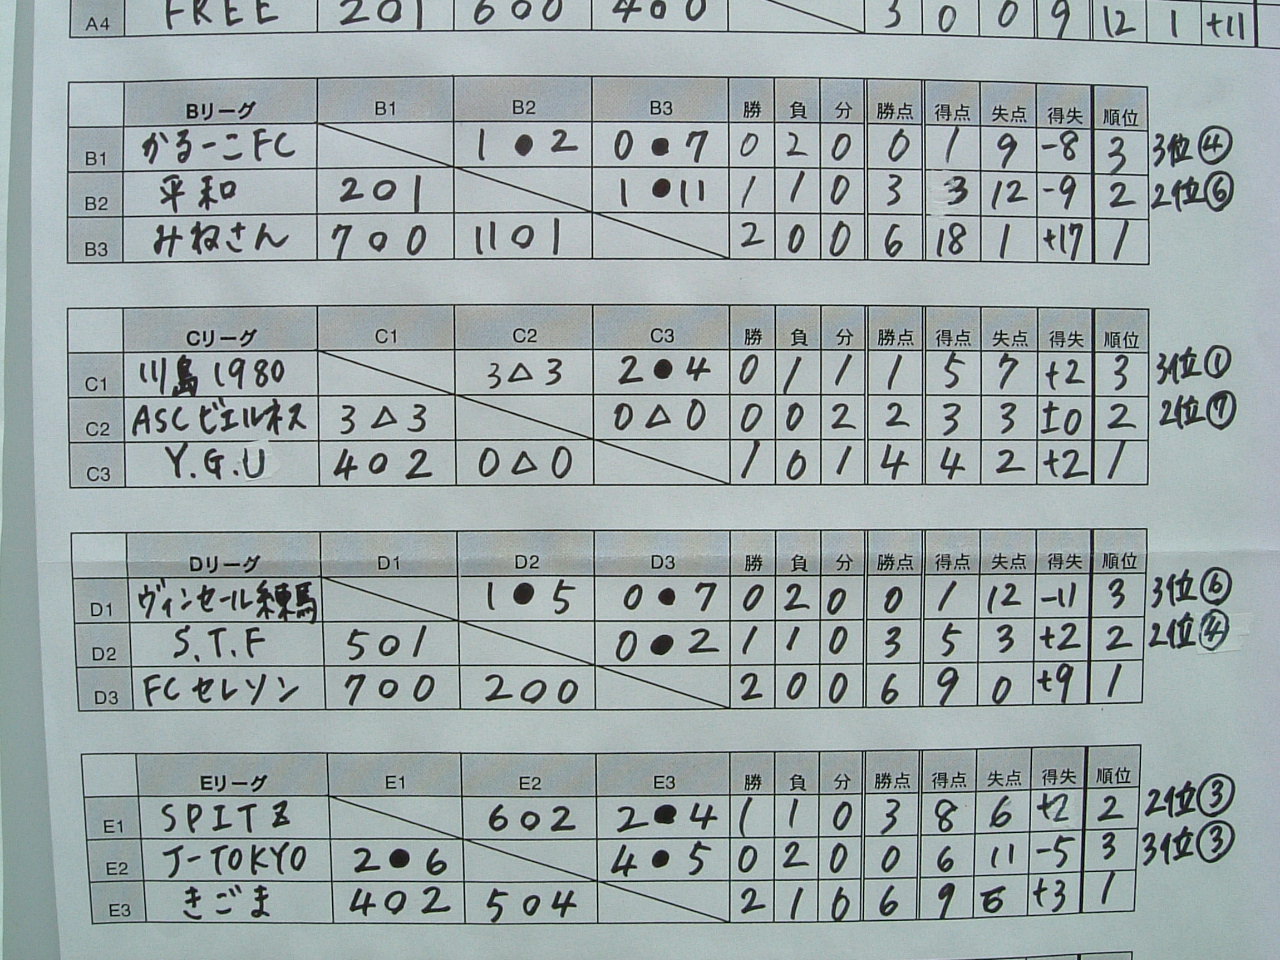 A4 FREE 2○1 6○0 4○0 3 0 0 9 12 1 +11
Bリーグ B1 B2 B3 勝 負 分 勝点 得点 失点 得失 順位
B1 かるーこFC 1●2 0●7 0 2 0 0 1 9 -8 3 3位④
B2 平和 2○1 1●11 1 1 0 3 3 12 -9 2 2位⑥
B3 みねさん 7○0 11○1 2 0 0 6 18 1 +17 1
Cリーグ C1 C2 C3 勝 負 分 勝点 得点 失点 得失 順位
C1 川島1980 3△3 2●4 0 1 1 1 5 7 +2 3 3位①
C2 ASCビエルネス 3△3 0△0 0 0 2 2 3 3 ±0 2 2位⑦
C3 Y.G.U 4○2 0△0 1 0 1 4 4 2 +2 1
Dリーグ D1 D2 D3 勝 負 分 勝点 得点 失点 得失 順位
D1 ヴィンセール練馬 1●5 0●7 0 2 0 0 1 12 -11 3 3位⑥
D2 S.T.F 5○1 0●2 1 1 0 3 5 3 +2 2 2位④
D3 FCセレソン 7○0 2○0 2 0 0 6 9 0 +9 1
Eリーグ E1 E2 E3 勝 負 分 勝点 得点 失点 得失 順位
E1 SPITZ 6○2 2●4 1 1 0 3 8 6 +2 2 2位③
E2 J-TOKYO 2●6 4●5 0 2 0 0 6 11 -5 3 3位③
E3 きごま 4○2 5○4 2 1 0 6 9 6 +3 1